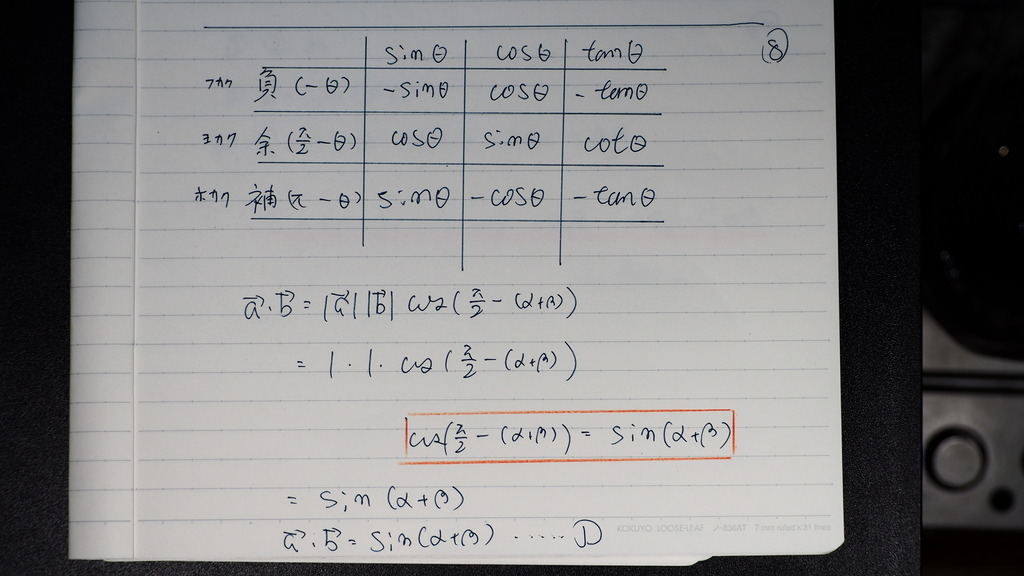 ⑧
sinθ cosθ tanθ
フカク 負 (-θ) -sinθ cosθ -tanθ
ヨカク 余 (π/2 - θ) cosθ sinθ cotθ
ホカク 補 (π - θ) sinθ -cosθ -tanθ
a⃗·b⃗ = |a⃗||b⃗| cos(π/2 - (α+β))
= 1·1·cos(π/2 - (α+β))
cos(π/2 - (α+β)) = sin(α+β)
= sin(α+β)
KOKUYO LOOSE-LEAF ノ-836AT 7mm ruled×31 lines
a⃗·b⃗ = sin(α+β) ····· ①